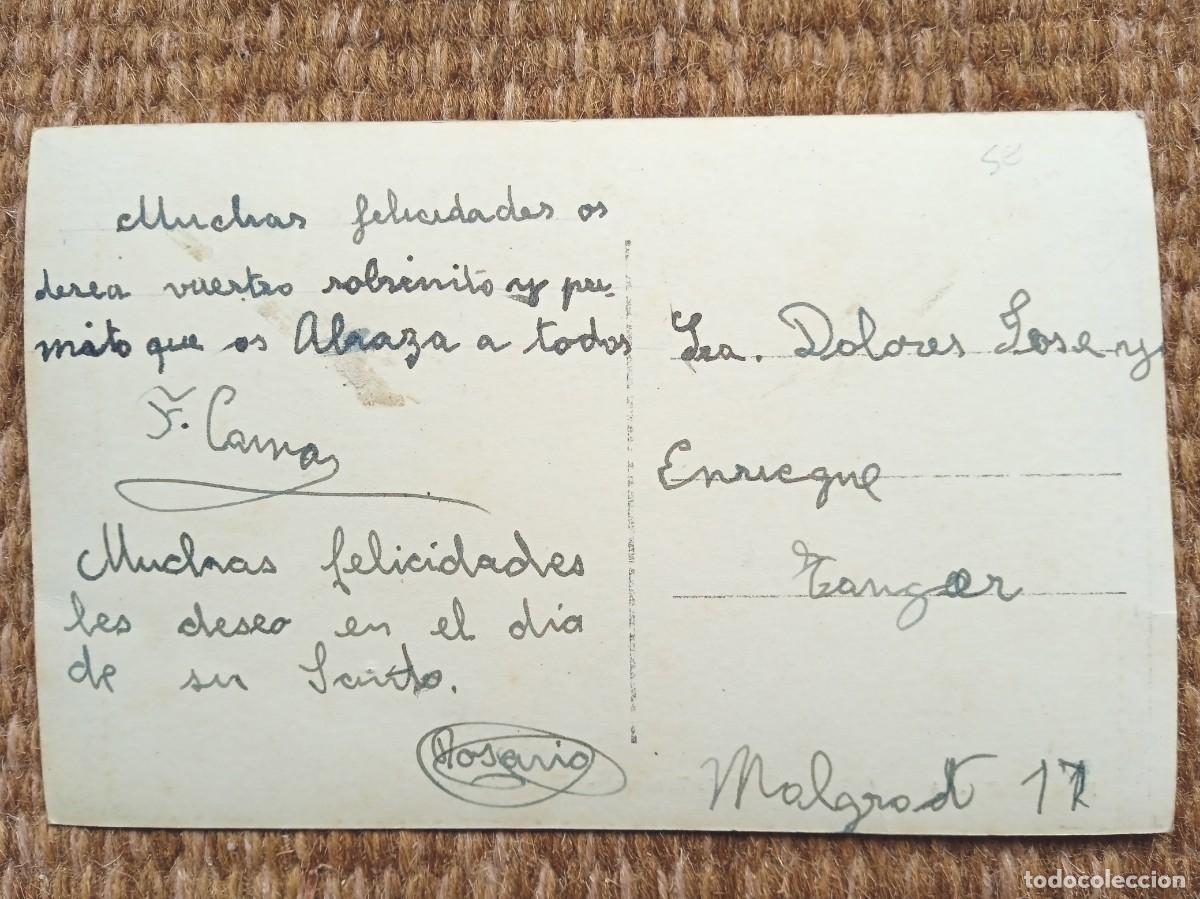 Muchas felicidades os
desea vuestro sobrinito y pri-
mito que os Abraza a todos
F. Cama
Muchas felicidades
les deseo en el dia
de su Santo.
Rosario
52
Sra. Dolores Jose y
Enrieque
Tanger
Malgrat 17
todocoleccion